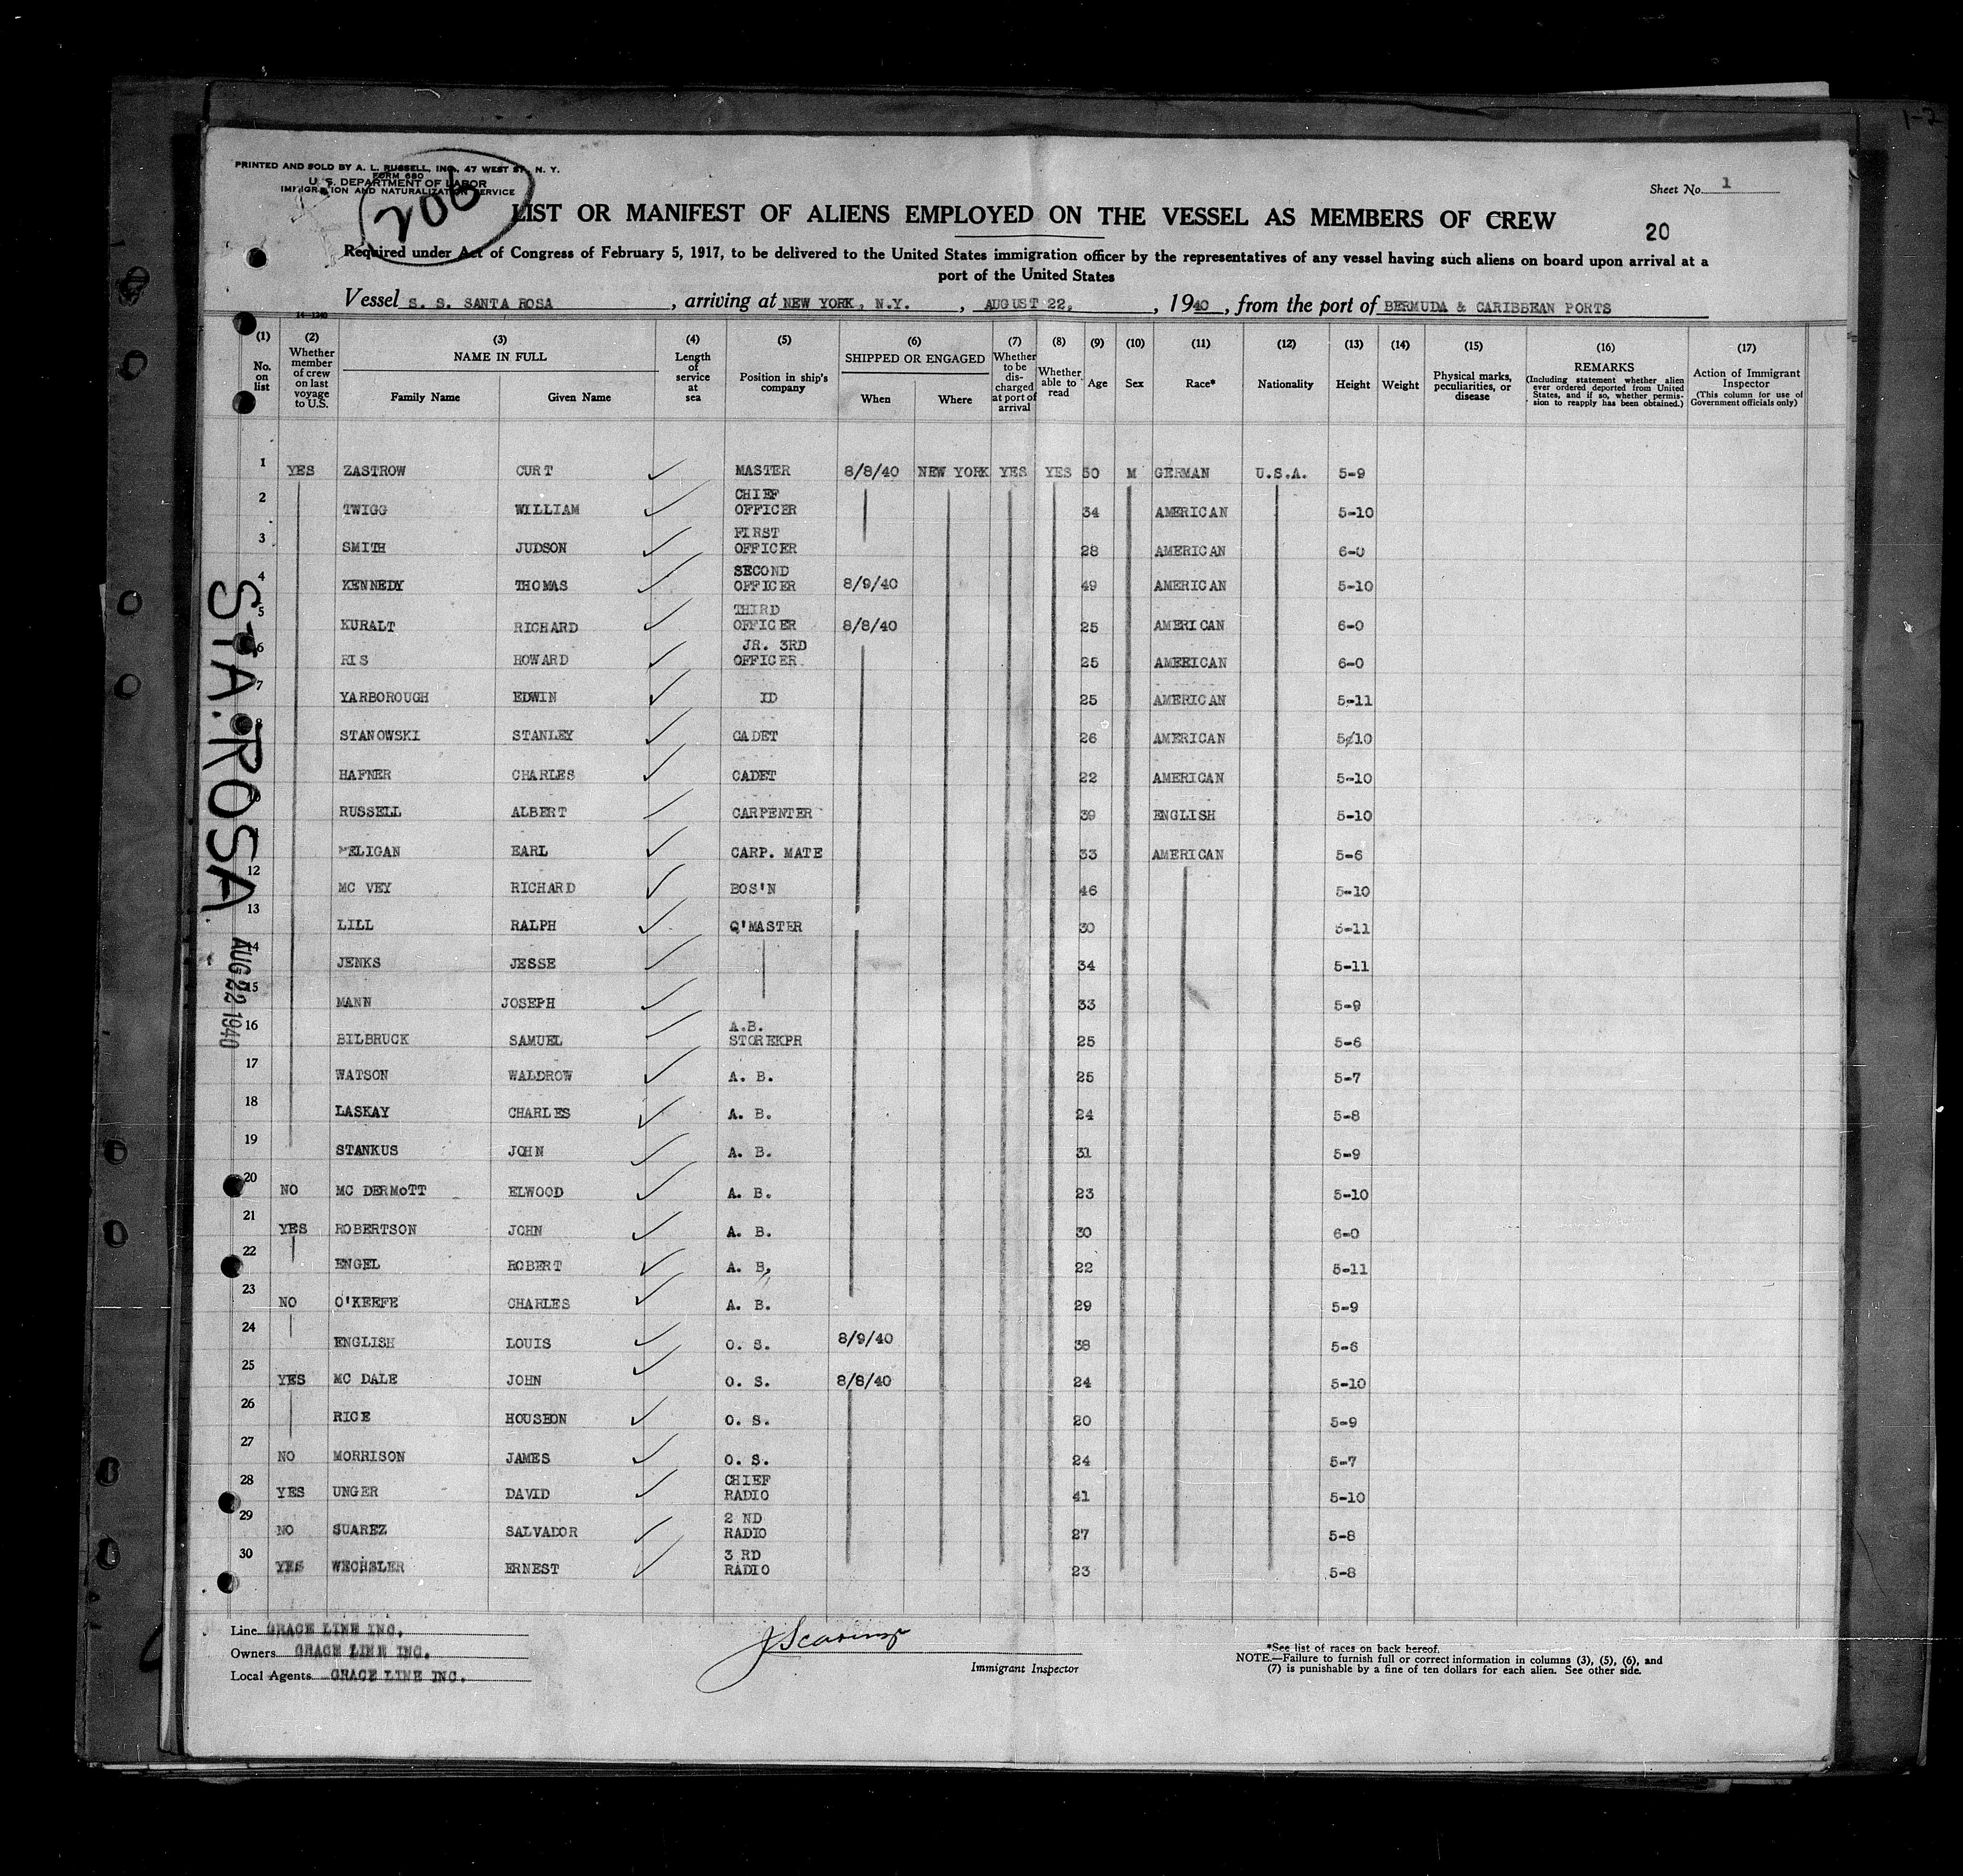 1-2
PRINTED AND SOLD BY A. L. RUSSELL, INC., 47 WEST ST., N. Y.
FORM 680
U. S. DEPARTMENT OF LABOR
IMMIGRATION AND NATURALIZATION SERVICE
206
Sheet No. 1
LIST OR MANIFEST OF ALIENS EMPLOYED ON THE VESSEL AS MEMBERS OF CREW
20
Required under Act of Congress of February 5, 1917, to be delivered to the United States immigration officer by the representatives of any vessel having such aliens on board upon arrival at a
port of the United States
Vessel S. S. SANTA ROSA, arriving at NEW YORK, N.Y., AUGUST 22, 1940, from the port of BERMUDA & CARIBBEAN PORTS
14-1240
(1) No. on list
(2) Whether member of crew on last voyage to U.S.
(3) NAME IN FULL Family Name Given Name
(4) Length of service at sea
(5) Position in ship's company
(6) SHIPPED OR ENGAGED When Where
(7) Whether to be discharged at port of arrival
(8) Whether able to read
(9) Age
(10) Sex
(11) Race*
(12) Nationality
(13) Height
(14) Weight
(15) Physical marks, peculiarities, or disease
(16) REMARKS (Including statement whether alien ever ordered deported from United States, and if so, whether permission to reapply has been obtained.)
(17) Action of Immigrant Inspector (This column for use of Government officials only)
1 YES ZASTROW CURT MASTER 8/8/40 NEW YORK YES YES 50 M GERMAN U.S.A. 5-9
2 TWIGG WILLIAM CHIEF OFFICER 34 AMERICAN 5-10
3 SMITH JUDSON FIRST OFFICER 28 AMERICAN 6-0
4 KENNEDY THOMAS SECOND OFFICER 8/9/40 49 AMERICAN 5-10
5 KURALT RICHARD THIRD OFFICER 8/8/40 25 AMERICAN 6-0
6 RIS HOWARD JR. 3RD OFFICER 25 AMERICAN 6-0
7 YARBOROUGH EDWIN ID 25 AMERICAN 5-11
8 STANOWSKI STANLEY CADET 26 AMERICAN 5-10
HAFNER CHARLES CADET 22 AMERICAN 5-10
10 RUSSELL ALBERT CARPENTER 39 ENGLISH 5-10
ELIGAN EARL CARP. MATE 33 AMERICAN 5-6
12 MC VEY RICHARD BOS'N 46 5-10
13 LILL RALPH Q'MASTER 30 5-11
14 JENKS JESSE 34 5-11
15 MANN JOSEPH 33 5-9
16 BILBRUCK SAMUEL A.B. STOREKPR 25 5-6
17 WATSON WALDROW A. B. 25 5-7
18 LASKAY CHARLES A. B. 24 5-8
19 STANKUS JOHN A. B. 31 5-9
20 NO MC DERMOTT ELWOOD A. B. 23 5-10
21 YES ROBERTSON JOHN A. B. 30 6-0
22 ENGEL ROBERT A. B. 22 5-11
23 NO O'KEEFE CHARLES A. B. 29 5-9
24 ENGLISH LOUIS O. S. 8/9/40 38 5-6
25 YES MC DALE JOHN O. S. 8/8/40 24 5-10
26 RICE HOUSEON O. S. 20 5-9
27 NO MORRISON JAMES O. S. 24 5-7
28 YES UNGER DAVID CHIEF RADIO 41 5-10
29 NO SUAREZ SALVADOR 2 ND RADIO 27 5-8
30 YES WECHSLER ERNEST 3 RD RADIO 23 5-8
STA. ROSA
AUG 22 1940
Line GRACE LINE INC.
Owners GRACE LINE INC.
Local Agents GRACE LINE INC.
Immigrant Inspector
*See list of races on back hereof.
NOTE.—Failure to furnish full or correct information in columns (3), (5), (6), and
(7) is punishable by a fine of ten dollars for each alien. See other side.